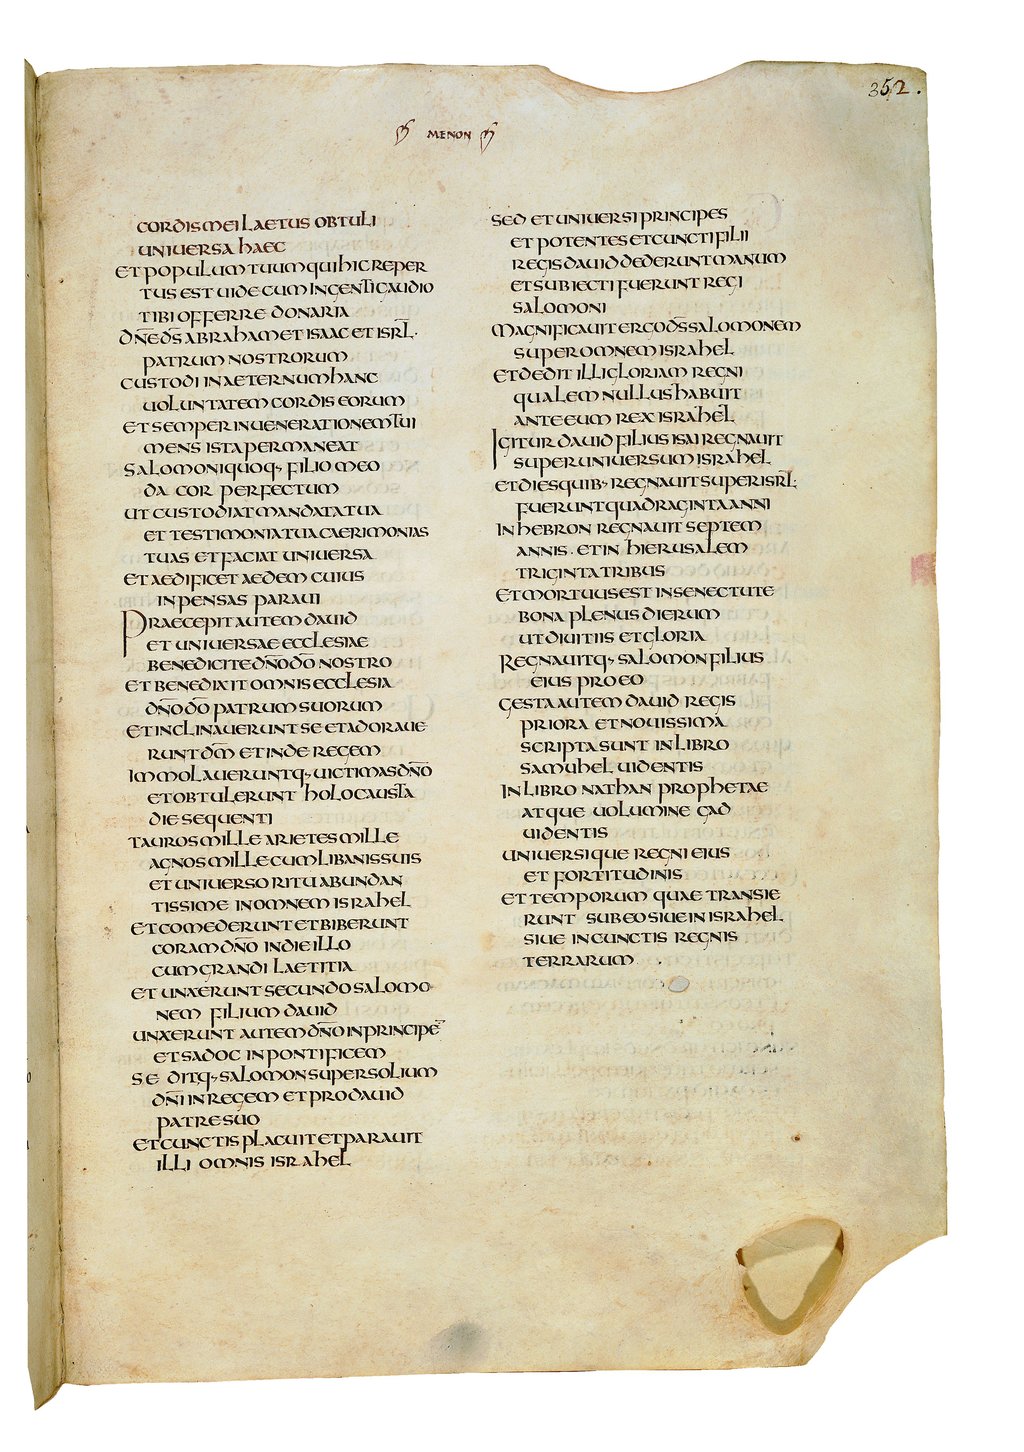 352.
MENON
CORDIS MEI LAETUS OBTULI
UNIUERSA HAEC
ET POPULUM TUUM QUI HIC REPER
TUS EST UIDE CUM INGENTI GAUDIO
TIBI OFFERRE DONARIA
DN̄E D̄S ABRAHAM ET ISAAC ET ISRL̄·
PATRUM NOSTRORUM
CUSTODI IN AETERNUM HANC
UOLUNTATEM CORDIS EORUM
ET SEMPER IN UENERATIONEM TUI
MENS ISTA PERMANEAT
SALOMONI QUOQ· FILIO MEO
DA COR PERFECTUM
UT CUSTODIAT MANDATA TUA
ET TESTIMONIA TUA CAERIMONIAS
TUAS ET FACIAT UNIUERSA
ET AEDIFICET AEDEM CUIUS
INPENSAS PARAUI
PRAECEPIT AUTEM DAUID
ET UNIUERSAE ECCLESIAE
BENEDICITE DN̄O D̄O NOSTRO
ET BENEDIXIT OMNIS ECCLESIA
DN̄O D̄O PATRUM SUORUM
ET INCLINAUERUNT SE ET ADORAUE
RUNT DM̄ ET INDE REGEM
IMMOLAUERUNTQ· UICTIMAS DN̄O
ET OBTULERUNT HOLOCAUSTA
DIE SEQUENTI
TAUROS MILLE ARIETES MILLE
AGNOS MILLE CUM LIBANIS SUIS
ET UNIUERSO RITU ABUNDAN
TISSIME IN OMNEM ISRAHEL
ET COMEDERUNT ET BIBERUNT
CORAM DN̄O IN DIE ILLO
CUM GRANDI LAETITIA
ET UNXERUNT SECUNDO SALOMO
NEM FILIUM DAUID
UNXERUNT AUTEM DN̄O IN PRINCIPĒ
ET SADOC IN PONTIFICEM
SEDITQ· SALOMON SUPER SOLIUM
DN̄I IN REGEM ET PRO DAUID
PATRE SUO
ET CUNCTIS PLACUIT ET PARAUIT
ILLI OMNIS ISRAHEL
SED ET UNIUERSI PRINCIPES
ET POTENTES ET CUNCTI FILII
REGIS DAUID DEDERUNT MANUM
ET SUBIECTI FUERUNT REGI
SALOMONI
MAGNIFICAUIT ERGO D̄S SALOMONEM
SUPER OMNEM ISRAHEL
ET DEDIT ILLI GLORIAM REGNI
QUALEM NULLUS HABUIT
ANTE EUM REX ISRAHEL
IGITUR DAUID FILIUS ISAI REGNAUIT
SUPER UNIUERSUM ISRAHEL
ET DIES QUIB· REGNAUIT SUPER ISRL̄·
FUERUNT QUADRAGINTA ANNI
IN HEBRON REGNAUIT SEPTEM
ANNIS · ET IN HIERUSALEM
TRIGINTA TRIBUS
ET MORTUUS EST IN SENECTUTE
BONA PLENUS DIERUM
UT DIUITIIS ET GLORIA
REGNAUITQ· SALOMON FILIUS
EIUS PRO EO
GESTA AUTEM DAUID REGIS
PRIORA ET NOUISSIMA
SCRIPTA SUNT IN LIBRO
SAMUHEL UIDENTIS
IN LIBRO NATHAN PROPHETAE
ATQUE UOLUMINE GAD
UIDENTIS
UNIUERSIQUE REGNI EIUS
ET FORTITUDINIS
ET TEMPORUM QUAE TRANSIE
RUNT SUB EO SIUE IN ISRAHEL
SIUE IN CUNCTIS REGNIS
TERRARUM .